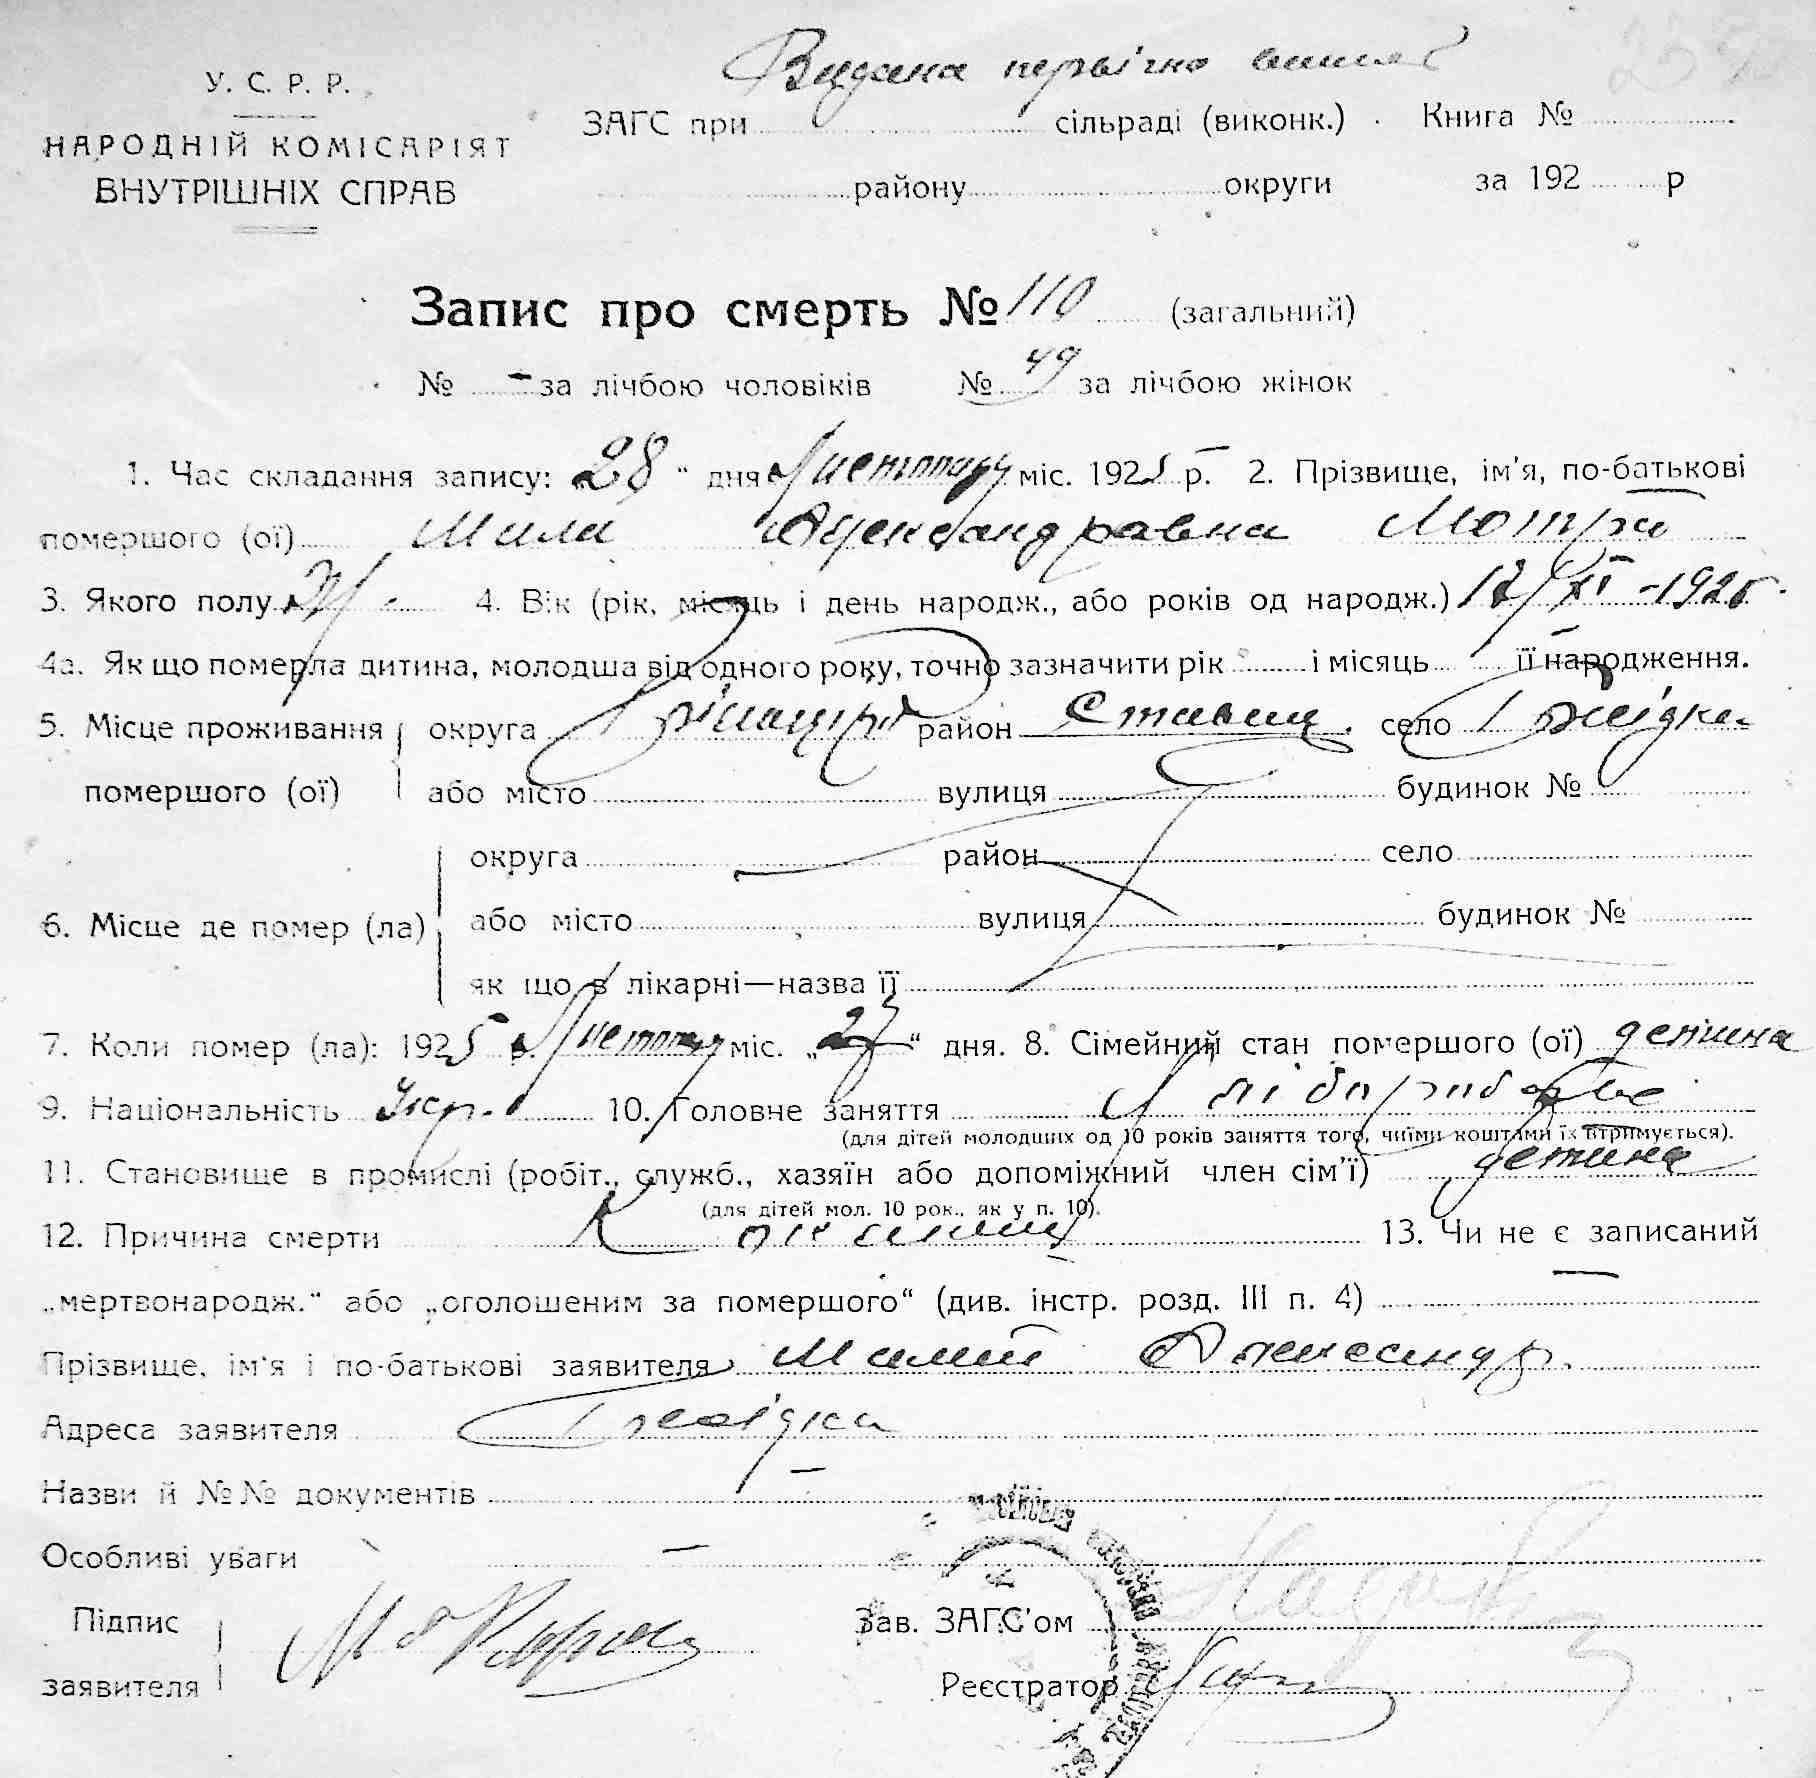 Видана первічно
У. С. Р. Р.
НАРОДНІЙ КОМІСАРІЯТ
ВНУТРІШНІХ СПРАВ
ЗАГС при сільраді (виконк.) Книга №
району округи за 192 р
Запис про смерть № 110 (загальний)
№ - за лічбою чоловіків № 49 за лічбою жінок
1. Час складання запису: „28“ дня Листопаду міс. 1925 р. 2. Прізвище, ім'я, по-батькові
помершого (ої) Мотра
3. Якого полу Ж. 4. Вік (рік, місяць і день народж., або років од народж.) 17/XI - 1925
4а. Як що померла дитина, молодша від одного року, точно зазначити рік і місяць її народження.
5. Місце проживання округа район Ставищ. село Гжідка
помершого (ої) або місто вулиця будинок №
округа район село
6. Місце де помер (ла) або місто вулиця будинок №
як що в лікарні—назва її
7. Коли помер (ла): 1925 р. Листопаду міс. „27“ дня. 8. Сімейний стан помершого (ої) детина
9. Національність Укр. 10. Головне заняття
(для дітей молодших од 10 років заняття того, чиїми коштами їх втримується).
11. Становище в промислі (робіт., служб., хазяїн або допоміжний член сім'ї) детина
(для дітей мол. 10 рок., як у п. 10).
12. Причина смерти 13. Чи не є записаний
„мертвонародж.“ або „оголошеним за помершого“ (див. інстр. розд. III п. 4) —
Прізвище, ім'я і по-батькові заявителя
Адреса заявителя Гжідка
Назви й №№ документів —
Особливі уваги —
Підпис
заявителя
Зав. ЗАГС'ом
Реєстратор